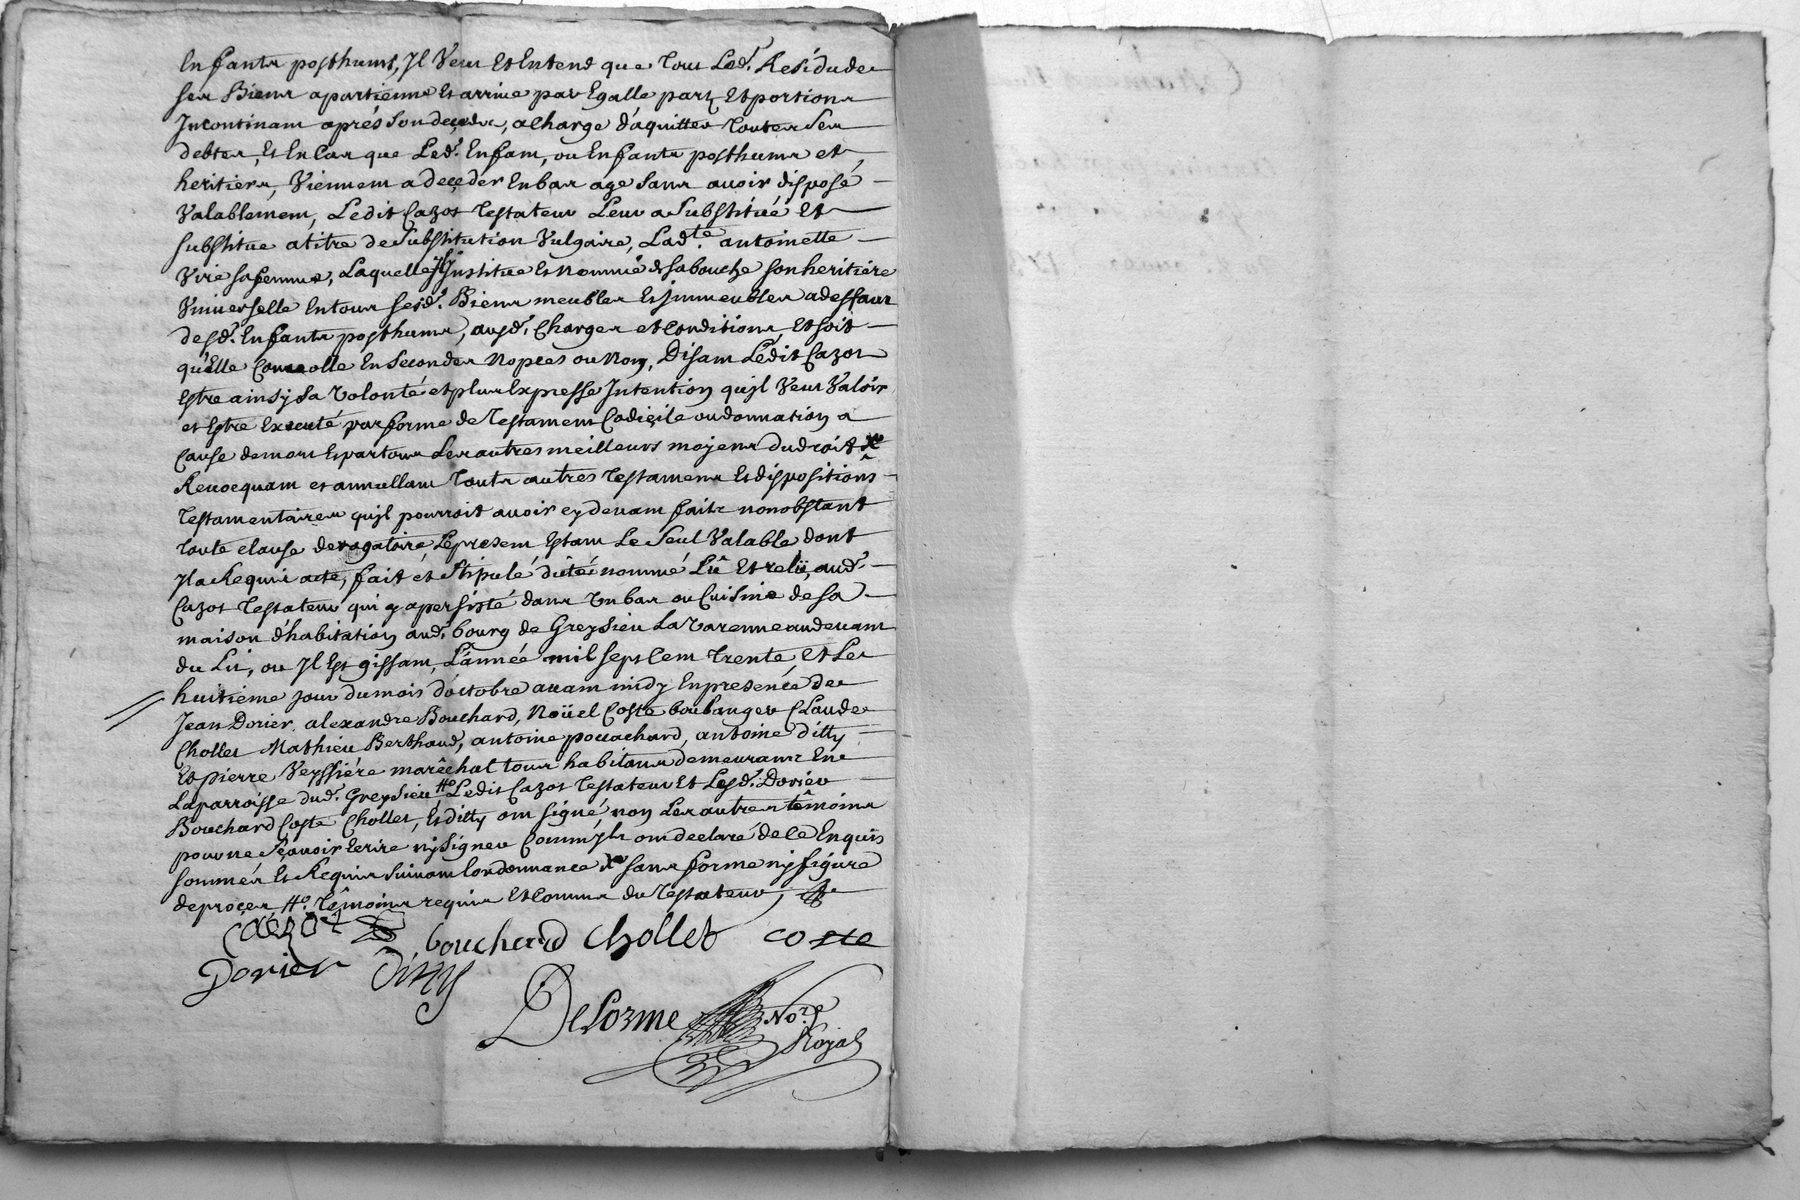 Enfants posthums, Jl Veut Et Entend que Tout Led.t Residu de
ses Biens apartienne Et arrive par Egalle parts Et portions
Jncontinant aprés Son decedz, a Charge d'aquitter Toutes Ses
debtes, Et En Cas que Led.t Enfant, ou Enfants posthums et
heritiers, Viennent a deçeder En bas age Sans auoir disposé
Valablement, Ledit Cazot Testateur Leur a Substitué Et
substitue a titre de Substitution Vulgaire, Lad.te antoinette
Virie sa femme, Laquelle Jl Jnstitue Et nomme de sa bouche son heritiére
Vniuerselle En tous sesd.ts Biens meubles Et jmmeubles a deffaut
desd.ts Enfants posthums, ausd.ts Charges et Conditions, Et soit
qu'Elle Conuolle En Secondes Nopces ou Non, Disant Lédit Cazot
Estre ainsy Sa Volonté et plus Expresse Jntention qu'jl Veut Valoir
et Estre Executé par forme de Testament Codiçile ou donnation a
Cause de mort Et par tous Les autres meilleurs moyens du droit &
Reuocquant et annullant Touts autres Testamens Et dispositions
Testamentaires qu'jl pourroit auoir cy deuant faits nonobstant
Toute clause derogatoire, Le present Estant Le Seul Valable dont
Jl a Requis acte, fait et Stipulé dicté nommé Lû Et relû, aud.t
Cazot Testateur qui y a persisté dans Un bas ou Cuisine de sa
maison d'habitation aud.t bourg de Greysieu La Varenne au deuant
du Lit, ou Jl Est gissant, L'année mil sept Cent Trente, Et Le
huitiéme jour du mois d'octobre auant midy En presence de
Jean Dorier, alexandre Bouchard, Noüel Coste boulanger Claude
Chollet Mathieu Berthaud, antoine pouachard, antoine ditty
Et pierre Veyssiére maréchal tous habitans demeurants En
La parroisse dud.t Greysieu # Ledit Cazot Testateur Et Lesd.ts Dorier
Bouchard Coste Chollet, Et ditty ont signé, non Les autres témoins
pour ne Sçauoir Ecrire ny Signer Comm'jls ont declaré de Ce Enquis
sommés Et Requis Suiuant Lordonnance & sans forme ny figure
de proçes # Témoins requis Et Connus du Testateur,
Cazot bouchard Chollet coste
Dorier ditty
Delorme No.re
Royal